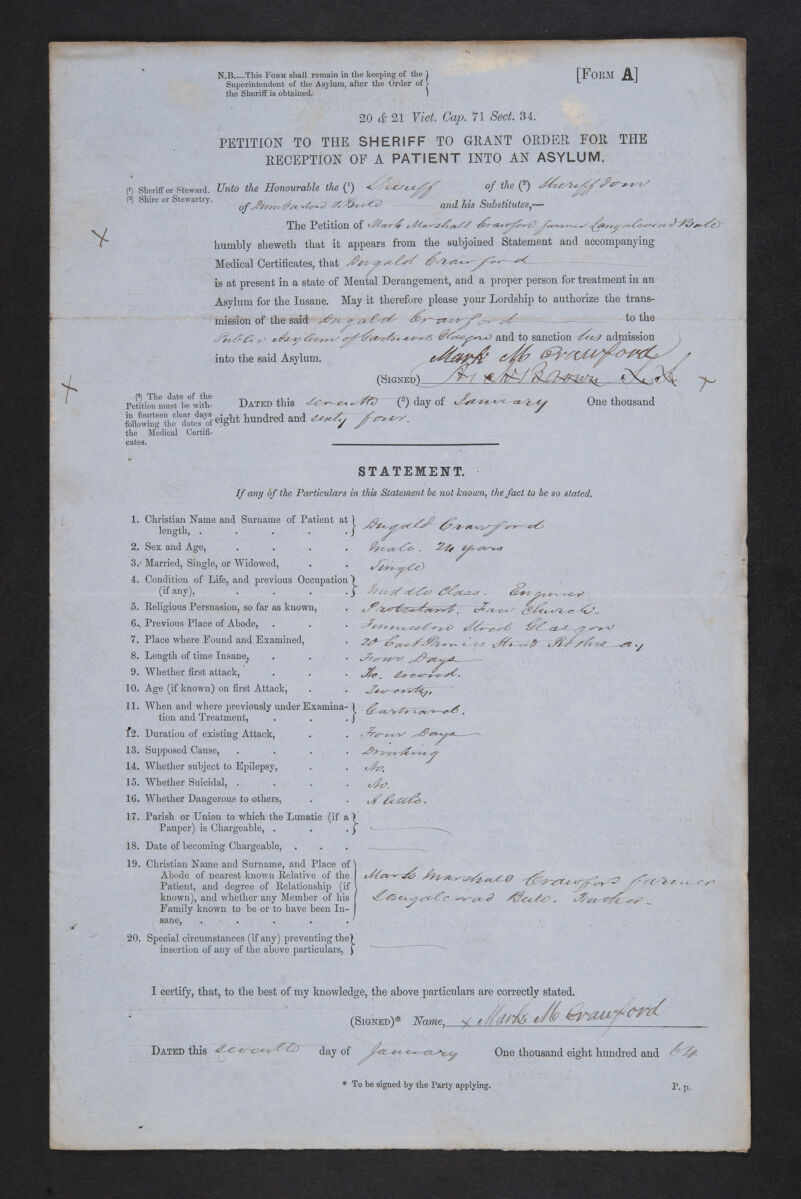 N.B.—This Form shall remain in the keeping of the
Superintendent of the Asylum, after the Order of
the Sheriff is obtained.
[Form A]
20 & 21 Vict. Cap. 71 Sect. 34.
PETITION TO THE SHERIFF TO GRANT ORDER FOR THE
RECEPTION OF A PATIENT INTO AN ASYLUM.
(¹) Sheriff or Steward.
(²) Shire or Stewartry.
Unto the Honourable the (¹) Sheriff of the (²) Sheriffdom
of Dumbarton & Bute and his Substitutes,—
The Petition of Mark Marshall Crawford farmer Langalcorad Bute
humbly sheweth that it appears from the subjoined Statement and accompanying
Medical Certificates, that Dugald Crawford
is at present in a state of Mental Derangement, and a proper person for treatment in an
Asylum for the Insane. May it therefore please your Lordship to authorize the trans-
mission of the said Dugald Crawford to the
Public Asylum of Gartnavel Glasgow and to sanction his admission
into the said Asylum.
Mark M Crawford
(Signed)
(³) The date of the
Petition must be with-
in fourteen clear days
following the dates of
the Medical Certifi-
cates.
Dated this seventh (³) day of January One thousand
eight hundred and sixty four.
STATEMENT.
If any of the Particulars in this Statement be not known, the fact to be so stated.
1. Christian Name and Surname of Patient at
length, . . . . . Dugald Crawford
2. Sex and Age, . . . . Male. 24 years
3. Married, Single, or Widowed, . . Single
4. Condition of Life, and previous Occupation
(if any), . . . . Middle Class. Engineer
5. Religious Persuasion, so far as known, . Protestant. Free Church.
6. Previous Place of Abode, . . . Street Glasgow
7. Place where Found and Examined, . 20 East Princes Street Rothesay
8. Length of time Insane, . . . Four Days
9. Whether first attack, . . . No. second.
10. Age (if known) on first Attack, . . Twenty.
11. When and where previously under Examina-
tion and Treatment, . . . Gartnavel.
12. Duration of existing Attack, . . Four Days
13. Supposed Cause, . . . . Drinking
14. Whether subject to Epilepsy, . . No.
15. Whether Suicidal, . . . . No.
16. Whether Dangerous to others, . . A little.
17. Parish or Union to which the Lunatic (if a
Pauper) is Chargeable, . . .
18. Date of becoming Chargeable, . . .
19. Christian Name and Surname, and Place of
Abode of nearest known Relative of the
Patient, and degree of Relationship (if
known), and whether any Member of his
Family known to be or to have been In-
sane, . . . . . .
Mark Marshall Crawford farmer
Langalcorad Bute. Father.
20. Special circumstances (if any) preventing the
insertion of any of the above particulars,
I certify, that, to the best of my knowledge, the above particulars are correctly stated.
(Signed)* Name, x Mark M Crawford
Dated this seventh day of January One thousand eight hundred and 64
* To be signed by the Party applying.
P. p.